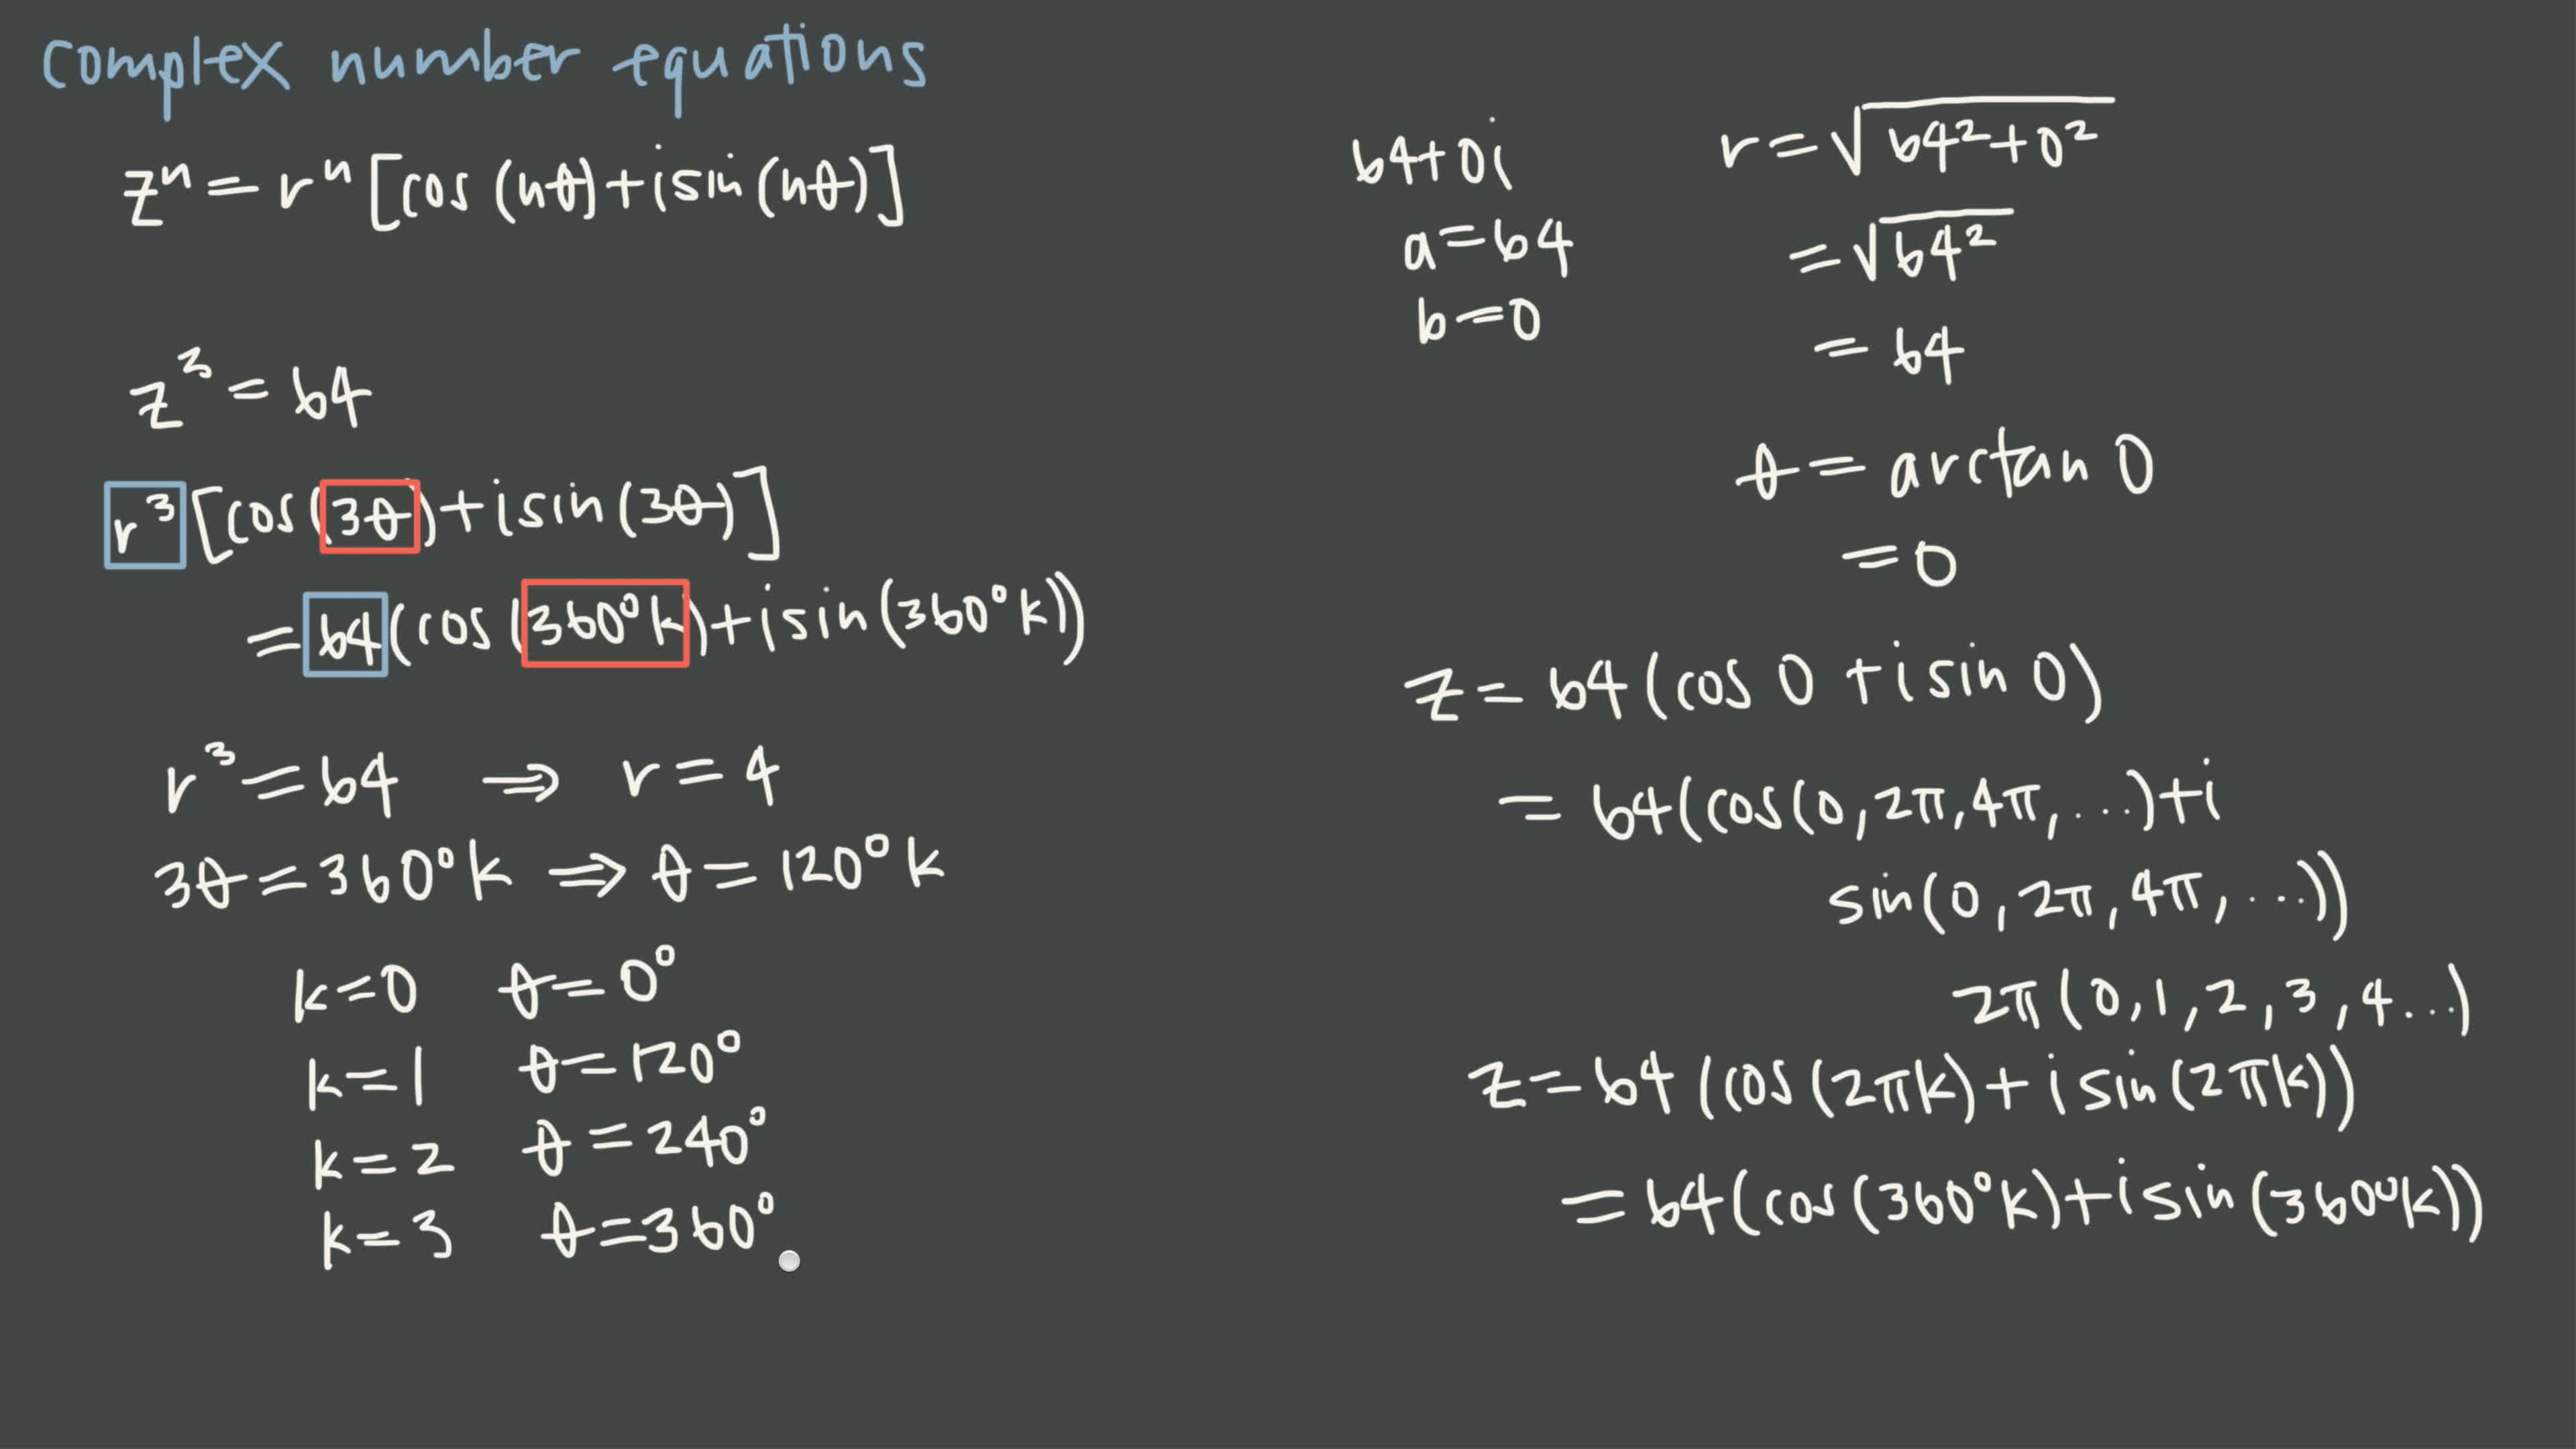 complex number equations
zⁿ = rⁿ [cos (nθ) + i sin (nθ)]
z³ = 64
r³ [cos (3θ) + i sin (3θ)]
= 64 (cos (360°k) + i sin (360°k))
r³ = 64 ⇒ r = 4
3θ = 360°k ⇒ θ = 120°k
k = 0 θ = 0°
k = 1 θ = 120°
k = 2 θ = 240°
k = 3 θ = 360°
64 + 0i
a = 64
b = 0
r = √(64² + 0²)
= √64²
= 64
θ = arctan 0
= 0
z = 64 (cos 0 + i sin 0)
= 64 (cos (0, 2π, 4π, ...) + i
sin (0, 2π, 4π, ...))
2π (0, 1, 2, 3, 4...)
z = 64 (cos (2πk) + i sin (2πk))
= 64 (cos (360°k) + i sin (360°k))